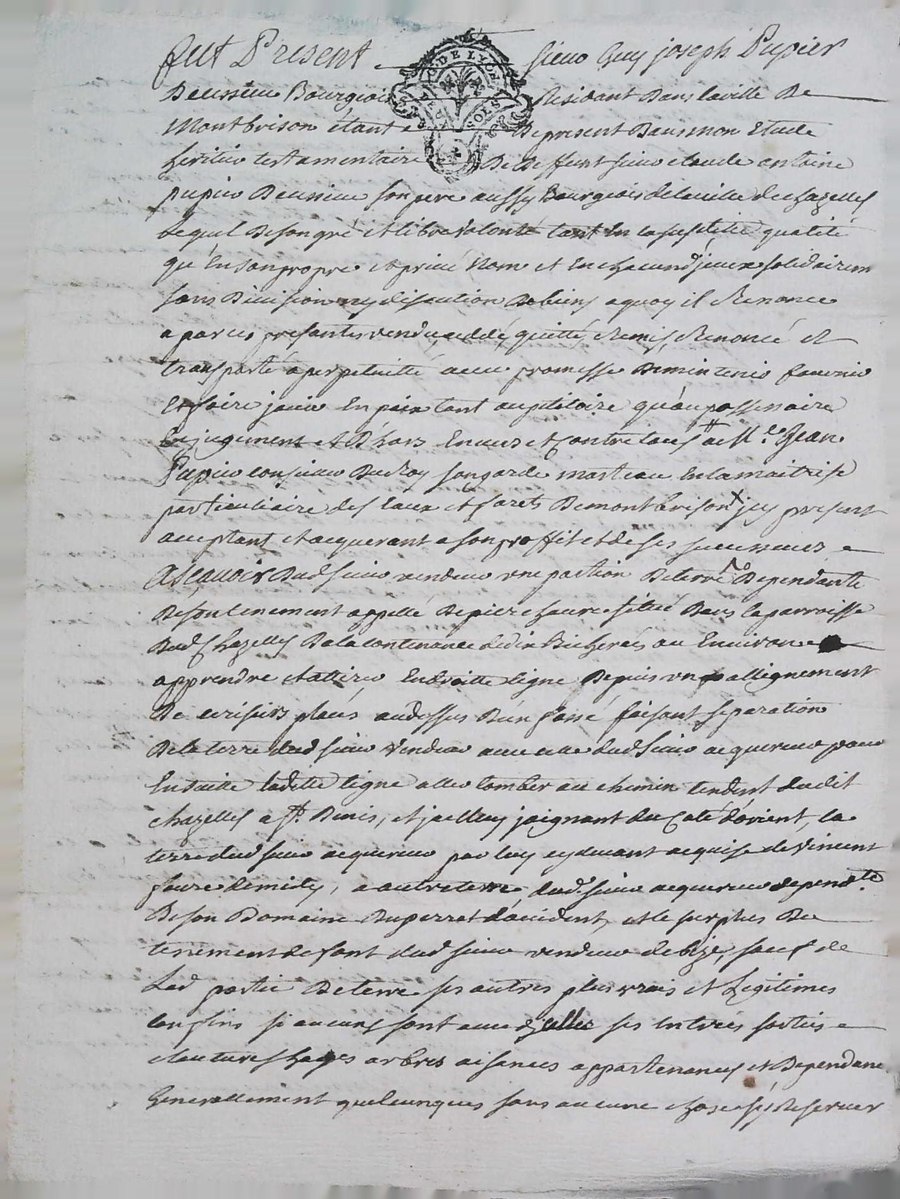 fut Present sieur Guy joseph Pupier
De Bourgeois Residant Dans la ville De
Montbrison étant De present Dans mon Etude
heritier testamentaire De Deffunt sieur claude antoine
pupier son pere aussy Bourgeois de la ville de chazelles
Lequel De son gré et libre volonté tant en la susditte qualité
qu'En son propre et privé Nom et En chacun d'jceux solidairem
sans Division ny discution De biens a quoy il Renonce
a par ces presantes vendu cedé quitté Remis Renoncé et
transporté a perpetuité avec promesse De maintenir fournir
Et faire jouir En paix tant au petitoire qu'au possessoire
En jugement et D'hors Envers et Contre tous a Mre Jean
Pupier conseiller Du Roy son garde marteau En la maitrise
particuliaire des Eaux et forets De montbrison jcy present
acceptant et acquerant a son proffit et de ses successeurs
Ascavoir Dud sieur vendeur une portion De terre Dependante
De son tenement appellé De pierre situé Dans la parroisse
Dud Chazelles De la contenance de dix Bicherées ou Environ
apprendre et attirer En droitte ligne Depuis un allignement
De cerisiers placés audessus D'un fossé faisant separation
De la terre dud sieur vendeur avec celle dud sieur acquereur pour
Ensuitte laditte ligne aller tomber au chemin tendent dudit
chazelles a St. Denis, et jcelluy joignant du Coté d'orient, la
terre dud sieur acquereur par luy cy devant acquise de vincent
faure demidy, a autre terre dud. sieur acquereur dependte.
De son Domaine Duperret d'occident, et le surplus Du
tenement de font dud sieur vendeur de bize, sauf de
Lad partie De terre ses autres plus vrais et Legitimes
confins si aucuns sont avec jcelles ses Entrées sorties
clautures hayes arbres aisances appartenances et Dependance
Generallement quelcunques sans aucune chose s'y Reserver